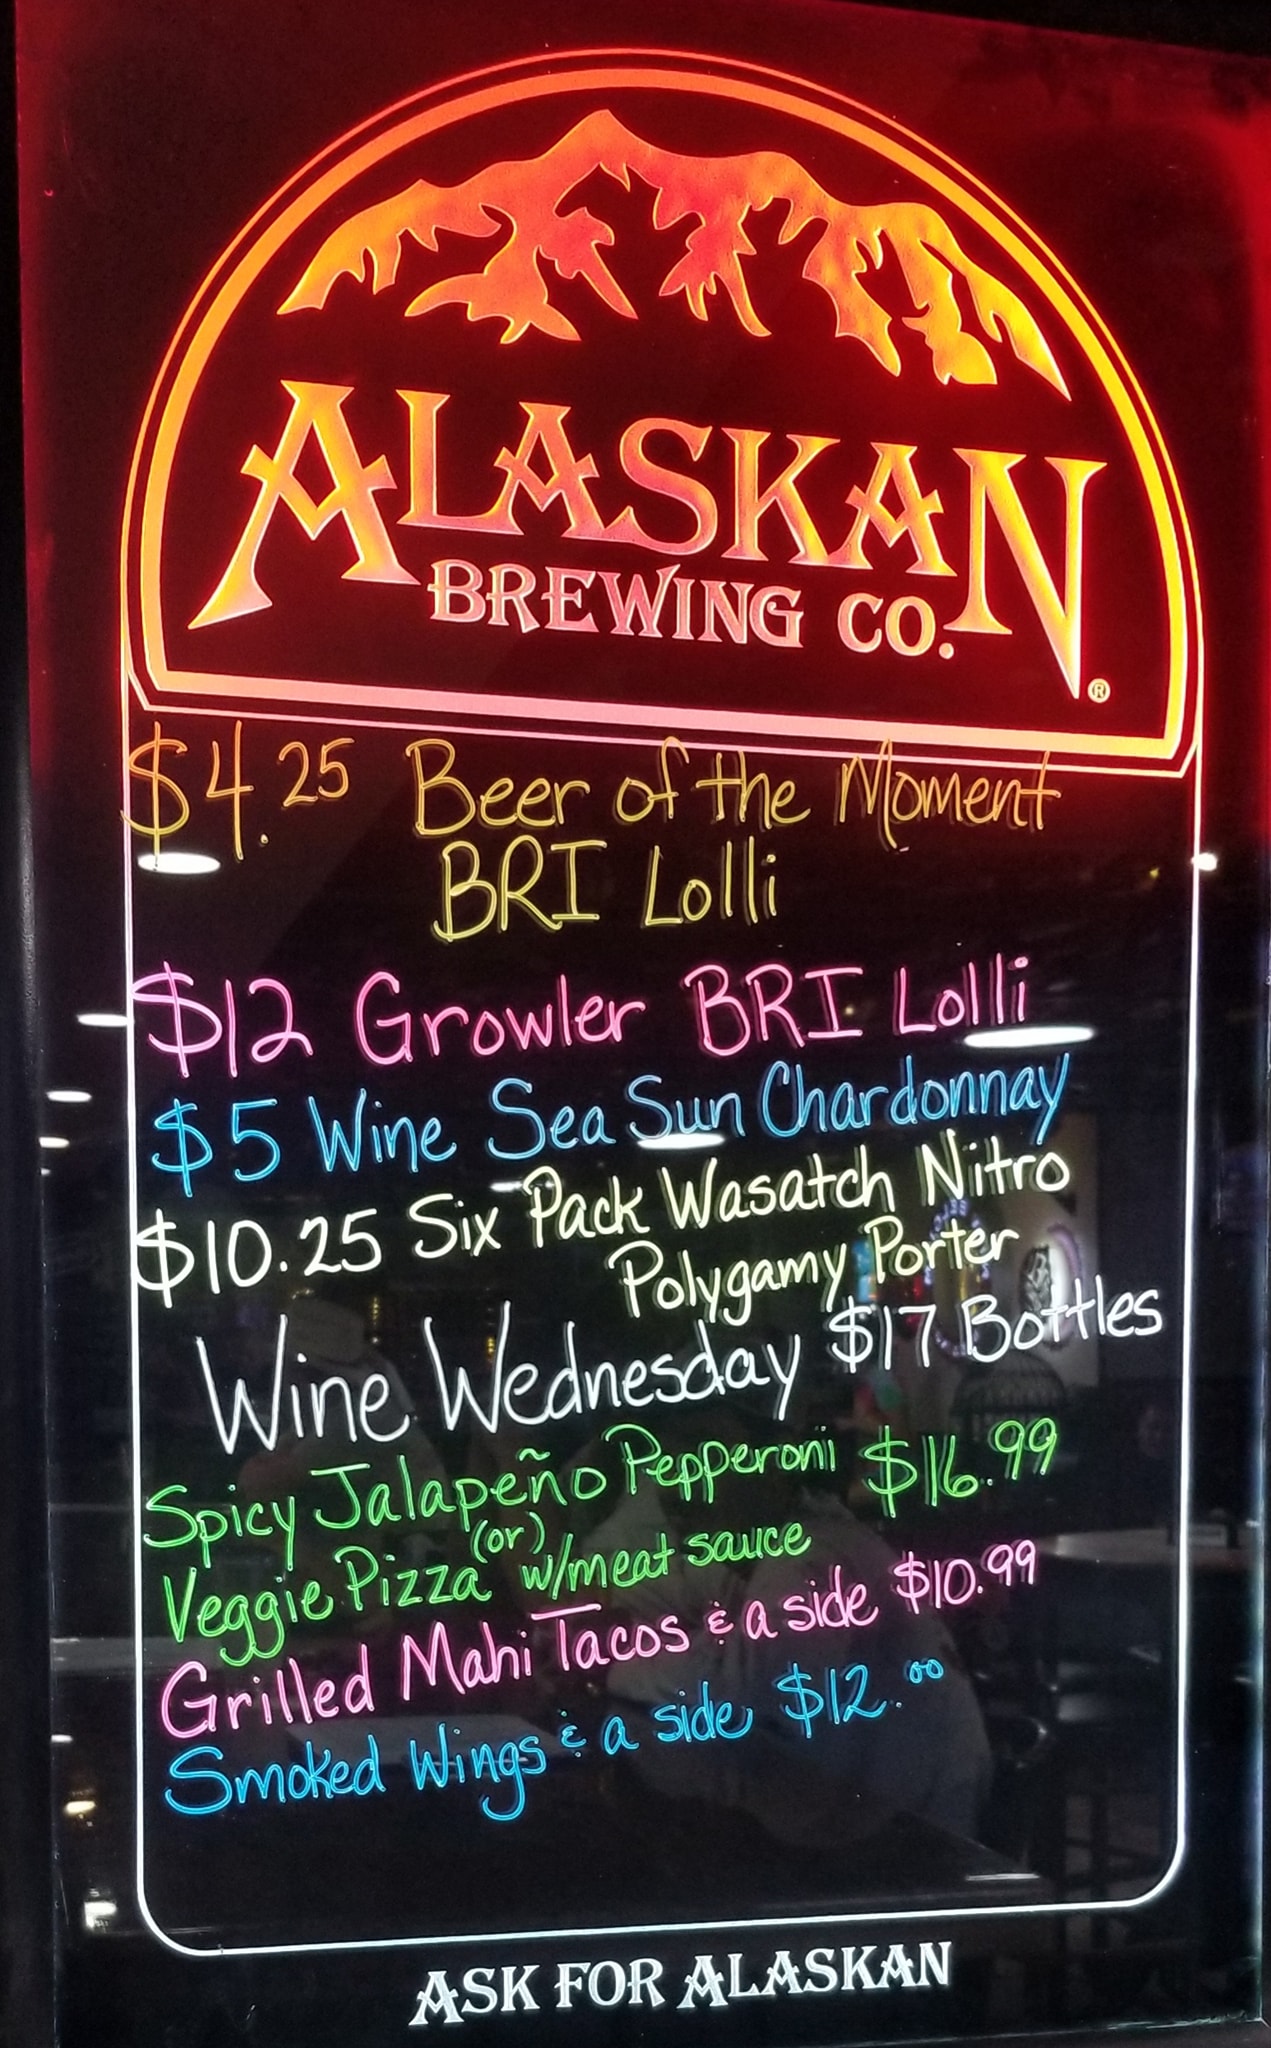 ALASKAN
BREWING CO.
®
$4.25 Beer of the Moment
BRI Lolli
$12 Growler BRI Lolli
$5 Wine Sea Sun Chardonnay
$10.25 Six Pack Wasatch Nitro
Polygamy Porter
Wine Wednesday $17 Bottles
Spicy Jalapeño Pepperoni $16.99
(or)
Veggie Pizza w/meat sauce
Grilled Mahi Tacos & a side $10.99
Smoked Wings & a side $12.00
ASK FOR ALASKAN